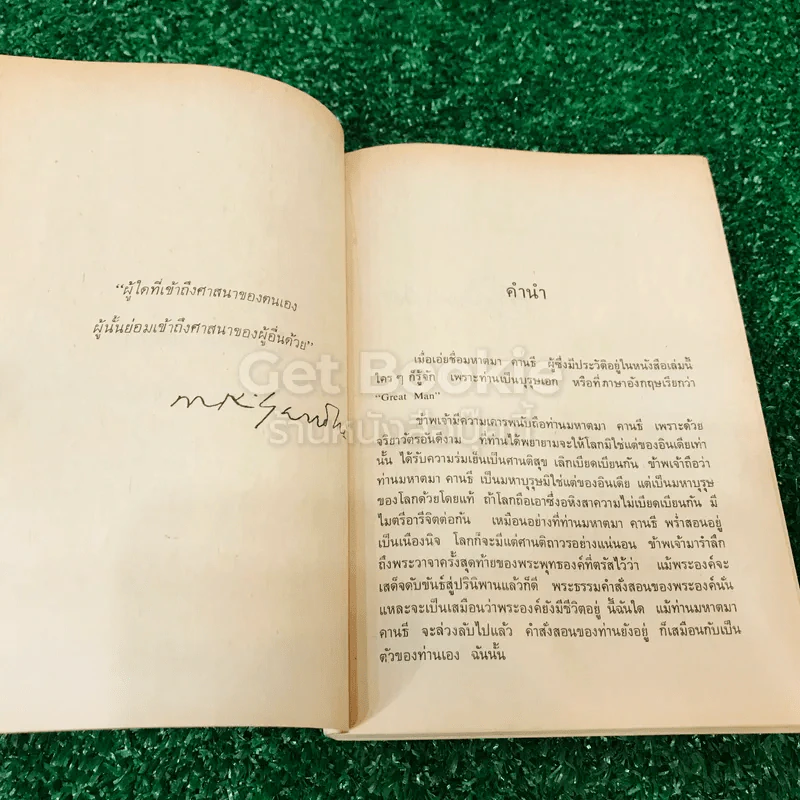 “ผู้ใดที่เข้าถึงศาสนาของตนเอง
ผู้นั้นย่อมเข้าถึงศาสนาของผู้อื่นด้วย”
M.K. Gandhi
คำนำ
เมื่อเอ่ยชื่อมหาตมา คานธี ผู้ซึ่งมีประวัติอยู่ในหนังสือเล่มนี้
ใคร ๆ ก็รู้จัก เพราะท่านเป็นบุรุษเอก หรือที่ภาษาอังกฤษเรียกว่า
“Great Man”
ข้าพเจ้ามีความเคารพนับถือท่านมหาตมา คานธี เพราะด้วย
จริยาวัตรอันดีงาม ที่ท่านได้พยายามจะให้โลกมิใช่แต่ของอินเดียเท่า
นั้น ได้รับความร่มเย็นเป็นศานติสุข เลิกเบียดเบียนกัน ข้าพเจ้าถือว่า
ท่านมหาตมา คานธี เป็นมหาบุรุษมิใช่แต่ของอินเดีย แต่เป็นมหาบุรุษ
ของโลกด้วยโดยแท้ ถ้าโลกถือเอาซึ่งอหิงสาความไม่เบียดเบียนกัน มี
ไมตรีอารีจิตต่อกัน เหมือนอย่างที่ท่านมหาตมา คานธี พร่ำสอนอยู่
เป็นเนืองนิจ โลกก็จะมีแต่ศานติถาวรอย่างแน่นอน ข้าพเจ้ามารำลึก
ถึงพระวาจาครั้งสุดท้ายของพระพุทธองค์ที่ตรัสไว้ว่า แม้พระองค์จะ
เสด็จดับขันธ์สู่ปรินิพานแล้วก็ดี พระธรรมคำสั่งสอนของพระองค์นั่น
แหละจะเป็นเสมือนว่าพระองค์ยังมีชีวิตอยู่ นี้ฉันใด แม้ท่านมหาตมา
คานธี จะล่วงลับไปแล้ว คำสั่งสอนของท่านยังอยู่ ก็เสมือนกับเป็น
ตัวของท่านเอง ฉันนั้น
Get Bookie
ร้านหนังสือเก็บตี้